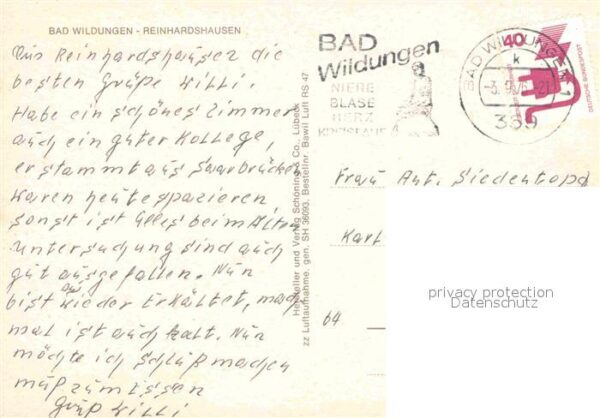 BAD WILDUNGEN - REINHARDSHAUSEN
Aus Reinhardshausen die
besten Grüße Willi
Habe ein schönes Zimmer
auch ein guter Kollege,
er stammt aus Saarbrücken
waren heute spazieren
sonst ist alles beim Alten
Untersuchung sind auch
gut ausgefallen. Nun
bist wieder Erkältet,
mal ist auch kalt. Nun
möchte ich schluß machen
muß zum Essen
Gruß Willi
Hersteller und Verlag Schöning & Co., Lübeck
zz Luftaufnahme, gen. SH 36093, Bestellnr. Bawil Luft RS 47
BAD
Wildungen
NIERE
BLASE
HERZ
KREISLAUF
BAD WILDUNGEN 1
k
-3.9.76-21
359
40
DEUTSCHE BUNDESPOST
Frau Ant. Siedentopd
Karl
64
privacy protection
Datenschutz